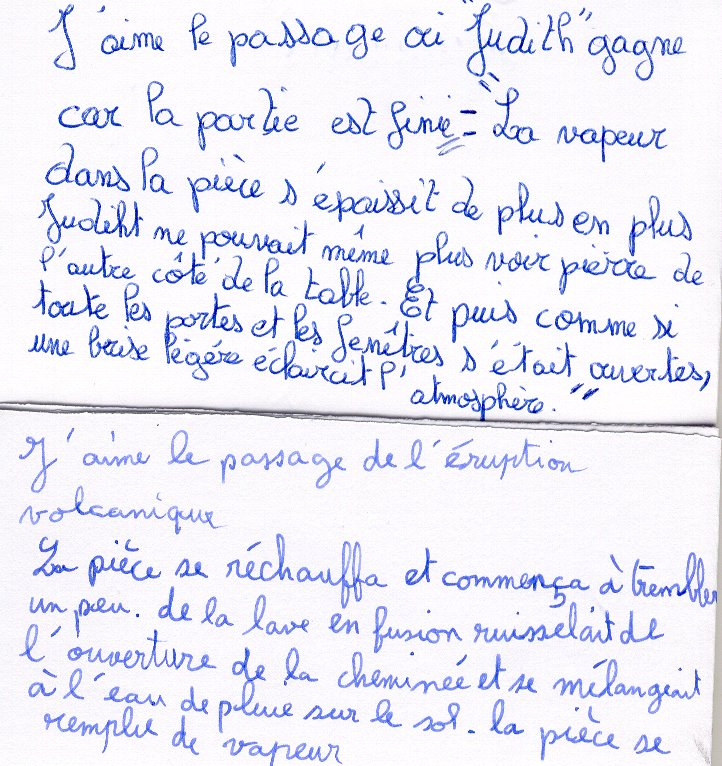 J'aime le passage où "Judith" gagne
car la partie est finie = "La vapeur
dans la pièce s'épaissit de plus en plus
Judiht ne pouvait même plus voir pierre de
l'autre côté de la table. Et puis comme si
toute les portes et les fenêtres s'était ouvertes,
une brise légére éclaircit l'
atmosphère."
J'aime le passage de l'éruption
volcanique
La pièce se réchauffa et commença à trembler
un peu. de la lave en fusion ruisselait de
l'ouverture de la cheminée et se mélangeait
à l'eau de pluie sur le sol. la pièce se
remplie de vapeur